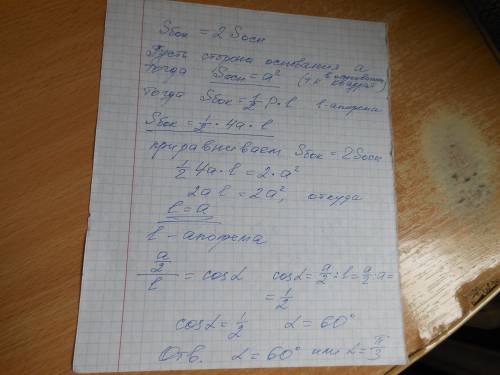 Sбок = 2 Sосн
Пусть сторона основания a
тогда Sосн = a² (т.к. в основании квадрат)
тогда Sбок = 1/2 P · l l - апофема
Sбок = 1/2 · 4a · l
приравниваем Sбок = 2Sосн
1/2 4a · l = 2 · a²
2al = 2a², откуда
l = a
l - апофема
(a/2)/l = cosα cosα = a/2 : l = a/2 : a =
= 1/2
cosα = 1/2 α = 60°
Отв. α = 60° или α = π/3